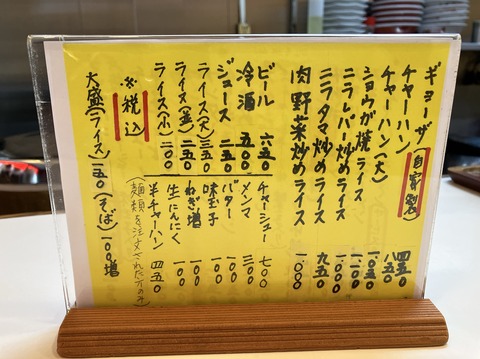 ギョーザ(自家製) 四五〇
チャーハン 八五〇
チャーハン(大) 一〇五〇
ショウガ焼ライス 一一〇〇
ニラレバー炒めライス 一〇〇〇
ニラタマ炒めライス 九五〇
肉野菜炒めライス 一〇〇〇
ビール 六五〇
冷酒 五〇〇
ジュース 二五〇
ライス(大) 三五〇
ライス(並) 二五〇
ライス(小) 二〇〇
※税込
チャーシュー 七〇〇
メンマ 三〇〇
バター 一〇〇
味玉子 一〇〇
ねぎ増 一〇〇
生にんにく 一〇〇
半チャーハン 四五〇
(麺類を注文された方のみ)
大盛(ライス)一五〇(そば)一〇〇増